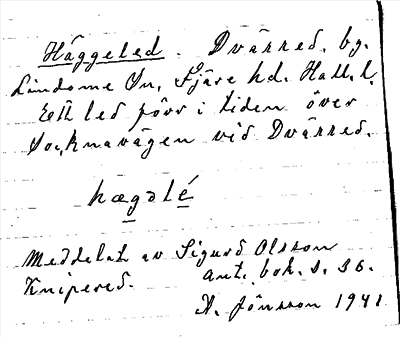 Häggeled. Dvärred, by.
Lindome Sn, Fjäre hd. Hall. l.
Ett led förr i tiden över
Socknavägen vid Dvärred.
hægəlé
Meddelat av Sigurd Olsson
Knipered. Ant. bok. s. 36.
A. Jönsson 1941